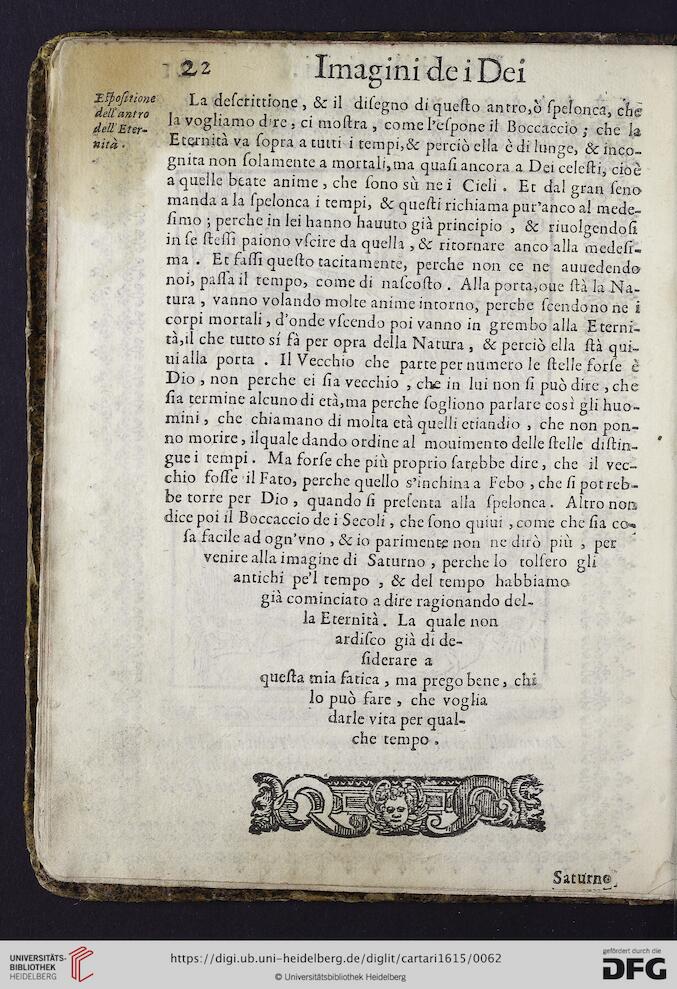 22
Imagini de i Dei
Espositione
dell'antro
dell'Eter-
nità.
La deſcrittione, & il diſegno di queſto antro, ò ſpelonca, che
la vogliamo dire, ci moſtra, come l'eſpone il Boccaccio; che la
Eternità va ſopra a tutti i tempi, & perciò ella è di lunge, & inco-
gnita non ſolamente a mortali, ma quaſi ancora a Dei celeſti, cioè
a quelle beate anime, che ſono sù ne i Cieli. Et dal gran ſeno
manda a la ſpelonca i tempi, & queſti richiama pur'anco al mede-
ſimo; perche in lei hanno hauuto già principio, & riuolgendoſi
in ſe ſteſſi paiono vſcire da quella, & ritornare anco alla medeſi-
ma. Et faſſi queſto tacitamente, perche non ce ne auuedendo
noi, paſſa il tempo, come di naſcoſto. Alla porta, oue ſtà la Na-
tura, vanno volando molte anime intorno, perche ſcendono ne i
corpi mortali, d'onde vſcendo poi vanno in grembo alla Eterni-
tà, il che tutto sí fà per opra della Natura, & perciò ella ſtà qui-
ui alla porta. Il Vecchio che parte per numero le ſtelle forſe è
Dio, non perche ei ſia vecchio, che in lui non ſi può dire, che
ſia termine alcuno di età, ma perche ſogliono parlare così gli huo-
mini, che chiamano di molta età quelli etiandio, che non pon-
no morire, ilquale dando ordine al mouimento delle ſtelle diſtin-
gue i tempi. Ma forſe che più proprio ſarebbe dire, che il vec-
chio foſſe il Fato, perche quello s'inchina a Febo, che ſi potreb-
be torre per Dio, quando ſi preſenta alla ſpelonca. Altro non
dice poi il Boccaccio de i Secoli, che ſono quiui, come che ſia co-
ſa facile ad ogn'vno, & io parimente non ne dirò più, per
venire alla imagine di Saturno, perche lo tolſero gli
antichi pe'l tempo, & del tempo habbiamo
già cominciato a dire ragionando del-
la Eternità. La quale non
ardiſco già di de-
ſiderare a
queſta mia fatica, ma prego bene, chi
lo può fare, che voglia
darle vita per qual-
che tempo.
Saturno
UNIVERSITÄTS-
BIBLIOTHEK
HEIDELBERG
https://digi.ub.uni-heidelberg.de/diglit/cartari1615/0062
© Universitätsbibliothek Heidelberg
gefördert durch die
DFG